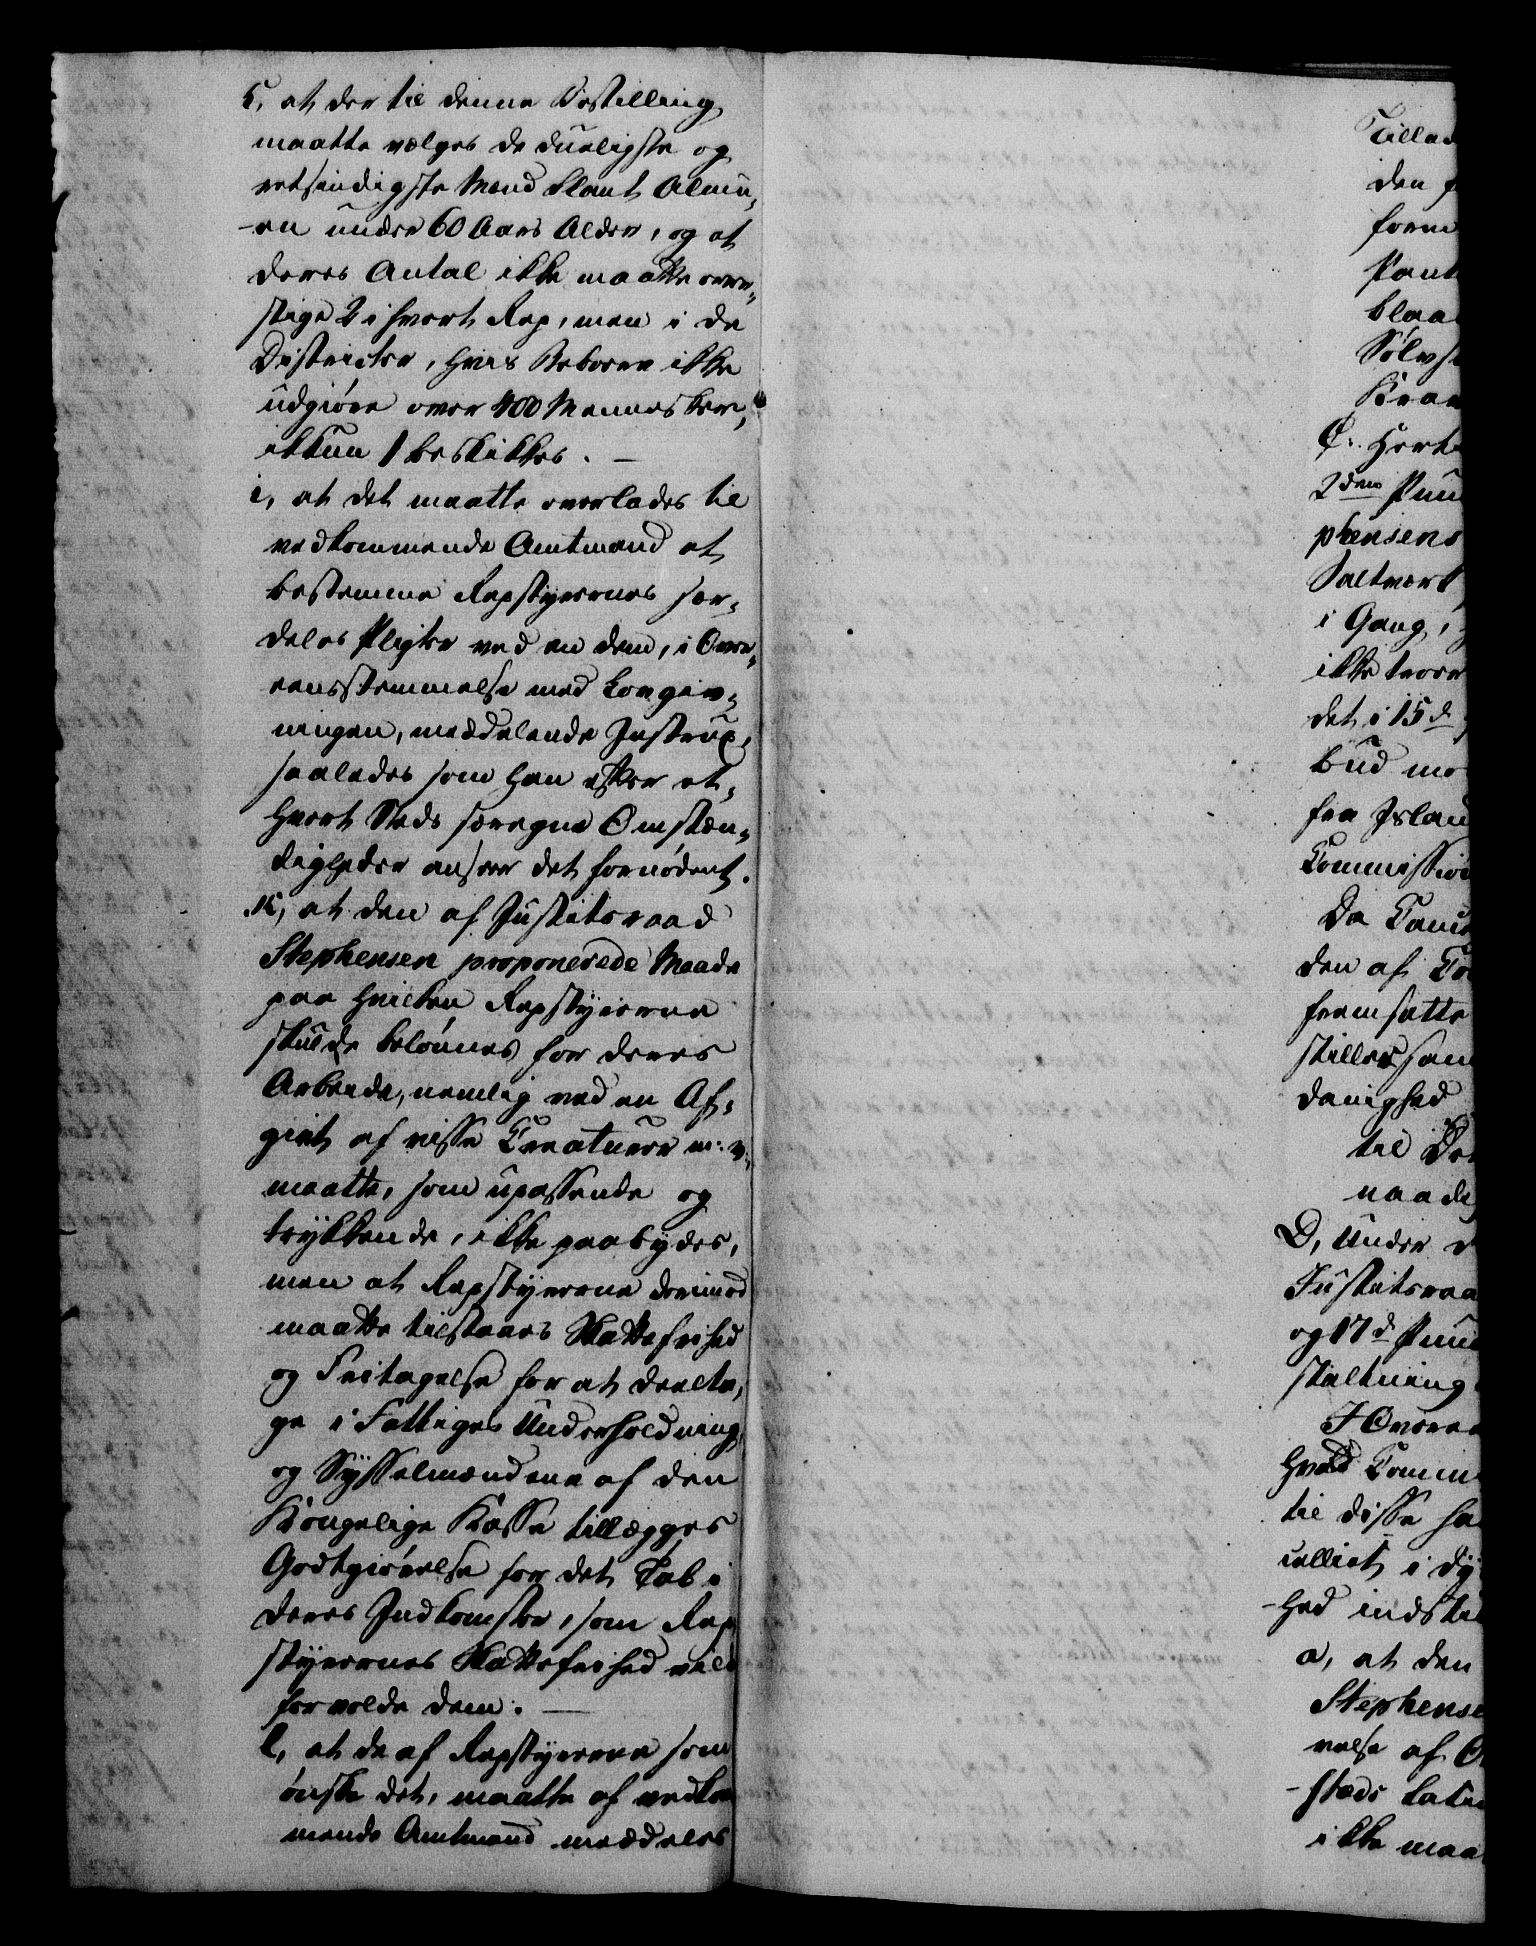 h, at der til denne Bestilling
maatte vælges de dueligste og
retsindigste Mænd blant Almu-
-en under 60 Aars Alder, og at
deres Antal ikke maatte over-
stige 2 i hvert Rep, men i de
Districter, hvis Beboere ikke
udgiøre over 400 Mennesker,
ikkun 1 beskikkes. —
i, at det maatte overlades til
vedkommende Amtmand at
bestemme Repstyrernes sær-
deles Pligter ved en dem, i Over-
eensstemmelse med Lovgiv-
ningen, meddelende Instrux,
saaledes som han efter et-
hvert Steds særegne Omstæn-
digheder anseer det fornødent.
k, at den af Justitsraad
Stephensen proponerede Maade
paa hvilken Repstyrerne
skulde belønnes for deres
Arbeide, nemlig ved en Af-
givt af visse Creaturer m: v:
maatte, som upassende og
trykkende, ikke paabydes,
men at Repstyrerne derimod
maatte tilstaaes Skattefrihed
og Fritagelse for at deelta-
ge i Fattiges Underholdning,
og Sysselmændene af den
Kongelige Kasse tillægges
Godtgiørelse for det Tab i
deres Indkomster, som Rep
styrernes Skattefrihed vil
forvolde dem. —
l, at de af Repstyrerne som
ønske det, maatte af vedkom
mende Amtmand meddeles
Tillad
den
form
Pant
blaa
Sølvs
Kran
C. Hert
2den Pun
phensens
Saltværk
i Gang,
ikke troer
det i 15d
bud mo
fra Island
Commission
Da Canc
den af Co
fremsatte
stiller sam
danighed
til De
naade
D, Under
Justitsraa
og 17d Pun
staltning
I Overe
hvad Comm
til disse ha
celliet i dy
-hed indstil
a, at den
Stephense
velse af O
-stæds Lati
ikke maa